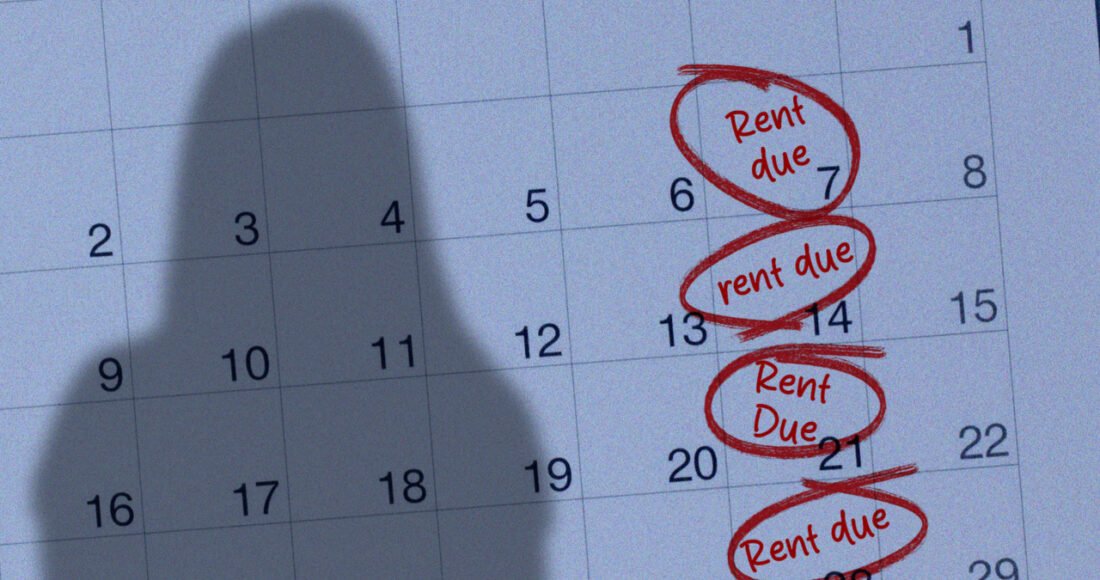 1
Rent
due
2 3 4 5 6 7 8
rent due
9 10 11 12 13 14 15
Rent
Due
16 17 18 19 20 21 22
Rent due
29